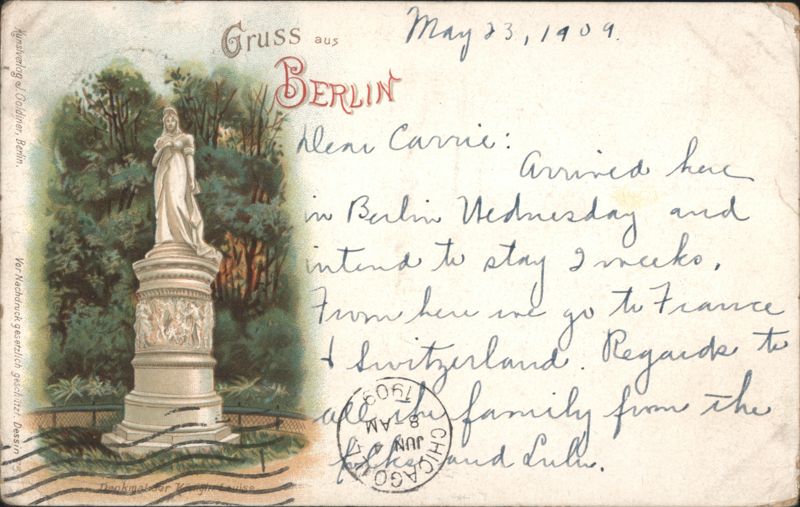 May 23, 1909.
Gruss aus
BERLIN
Dear Carrie:
Arrived here
in Berlin Wednesday and
intend to stay 2 weeks.
From here we go to France
& Switzerland. Regards to
all the family from the
folks and Lulu.
CHICAGO
JUN 4
8 AM
1909
Denkmal der Königin Louise
Kunstverlag J. Goldiner, Berlin.
Vor Nachdruck gesetzlich geschützt. Dessin